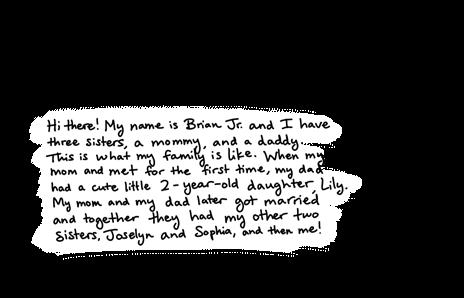 Hi there! My name is Brian Jr. and I have
three sisters, a mommy, and a daddy...
This is what my family is like. When my
mom and met for the first time, my dad
had a cute little 2-year-old daughter, Lily.
My mom and my dad later got married
and together they had my other two
Sisters, Joselyn and Sophia, and then me!